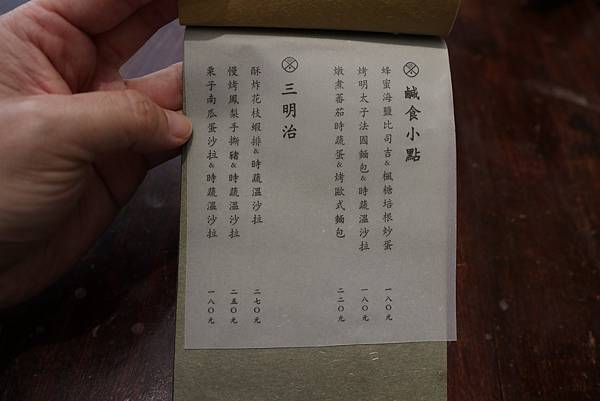 鹹食小點
蜂蜜海鹽比司吉&楓糖培根炒蛋 一八〇元
烤明太子法國麵包&時蔬溫沙拉 一八〇元
燉煮蕃茄時蔬蛋&烤歐式麵包 二二〇元
三明治
酥炸花枝蝦排&時蔬溫沙拉 二七〇元
慢烤鳳梨手撕豬&時蔬溫沙拉 二五〇元
栗子南瓜蛋沙拉&時蔬溫沙拉 一八〇元